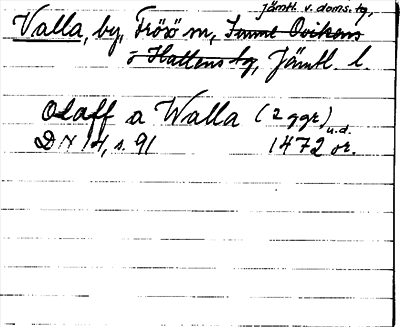 jämtl. v. doms. tg,
Valla, by, Frösö sn, Sunne Ovikens
o Hallens tg, Jämtl l.
Olaff a Walla (2 ggr)
u.d.
DN 14, s. 91 1472 or.